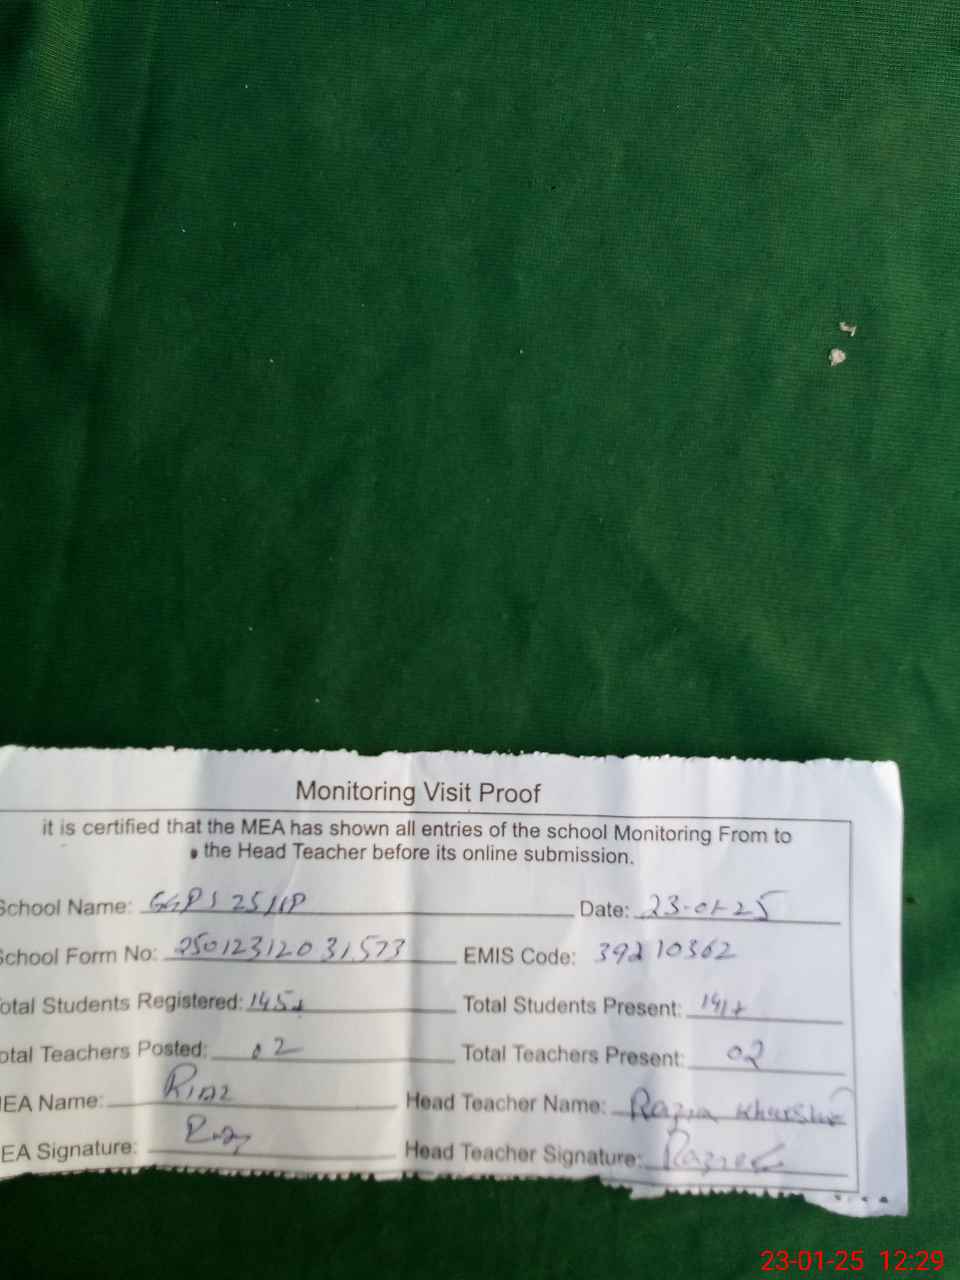 Monitoring Visit Proof
it is certified that the MEA has shown all entries of the school Monitoring From to
the Head Teacher before its online submission.
School Name: GGPS 25/1P Date: 23-01-25
School Form No: 25012312031573 EMIS Code: 39210362
otal Students Registered: 145+ Total Students Present: 141+
otal Teachers Posted: 02 Total Teachers Present: 02
EA Name: Riaz Head Teacher Name: Razia Khurshid
EA Signature: Riaz Head Teacher Signature: Razia
23-01-25 12:29